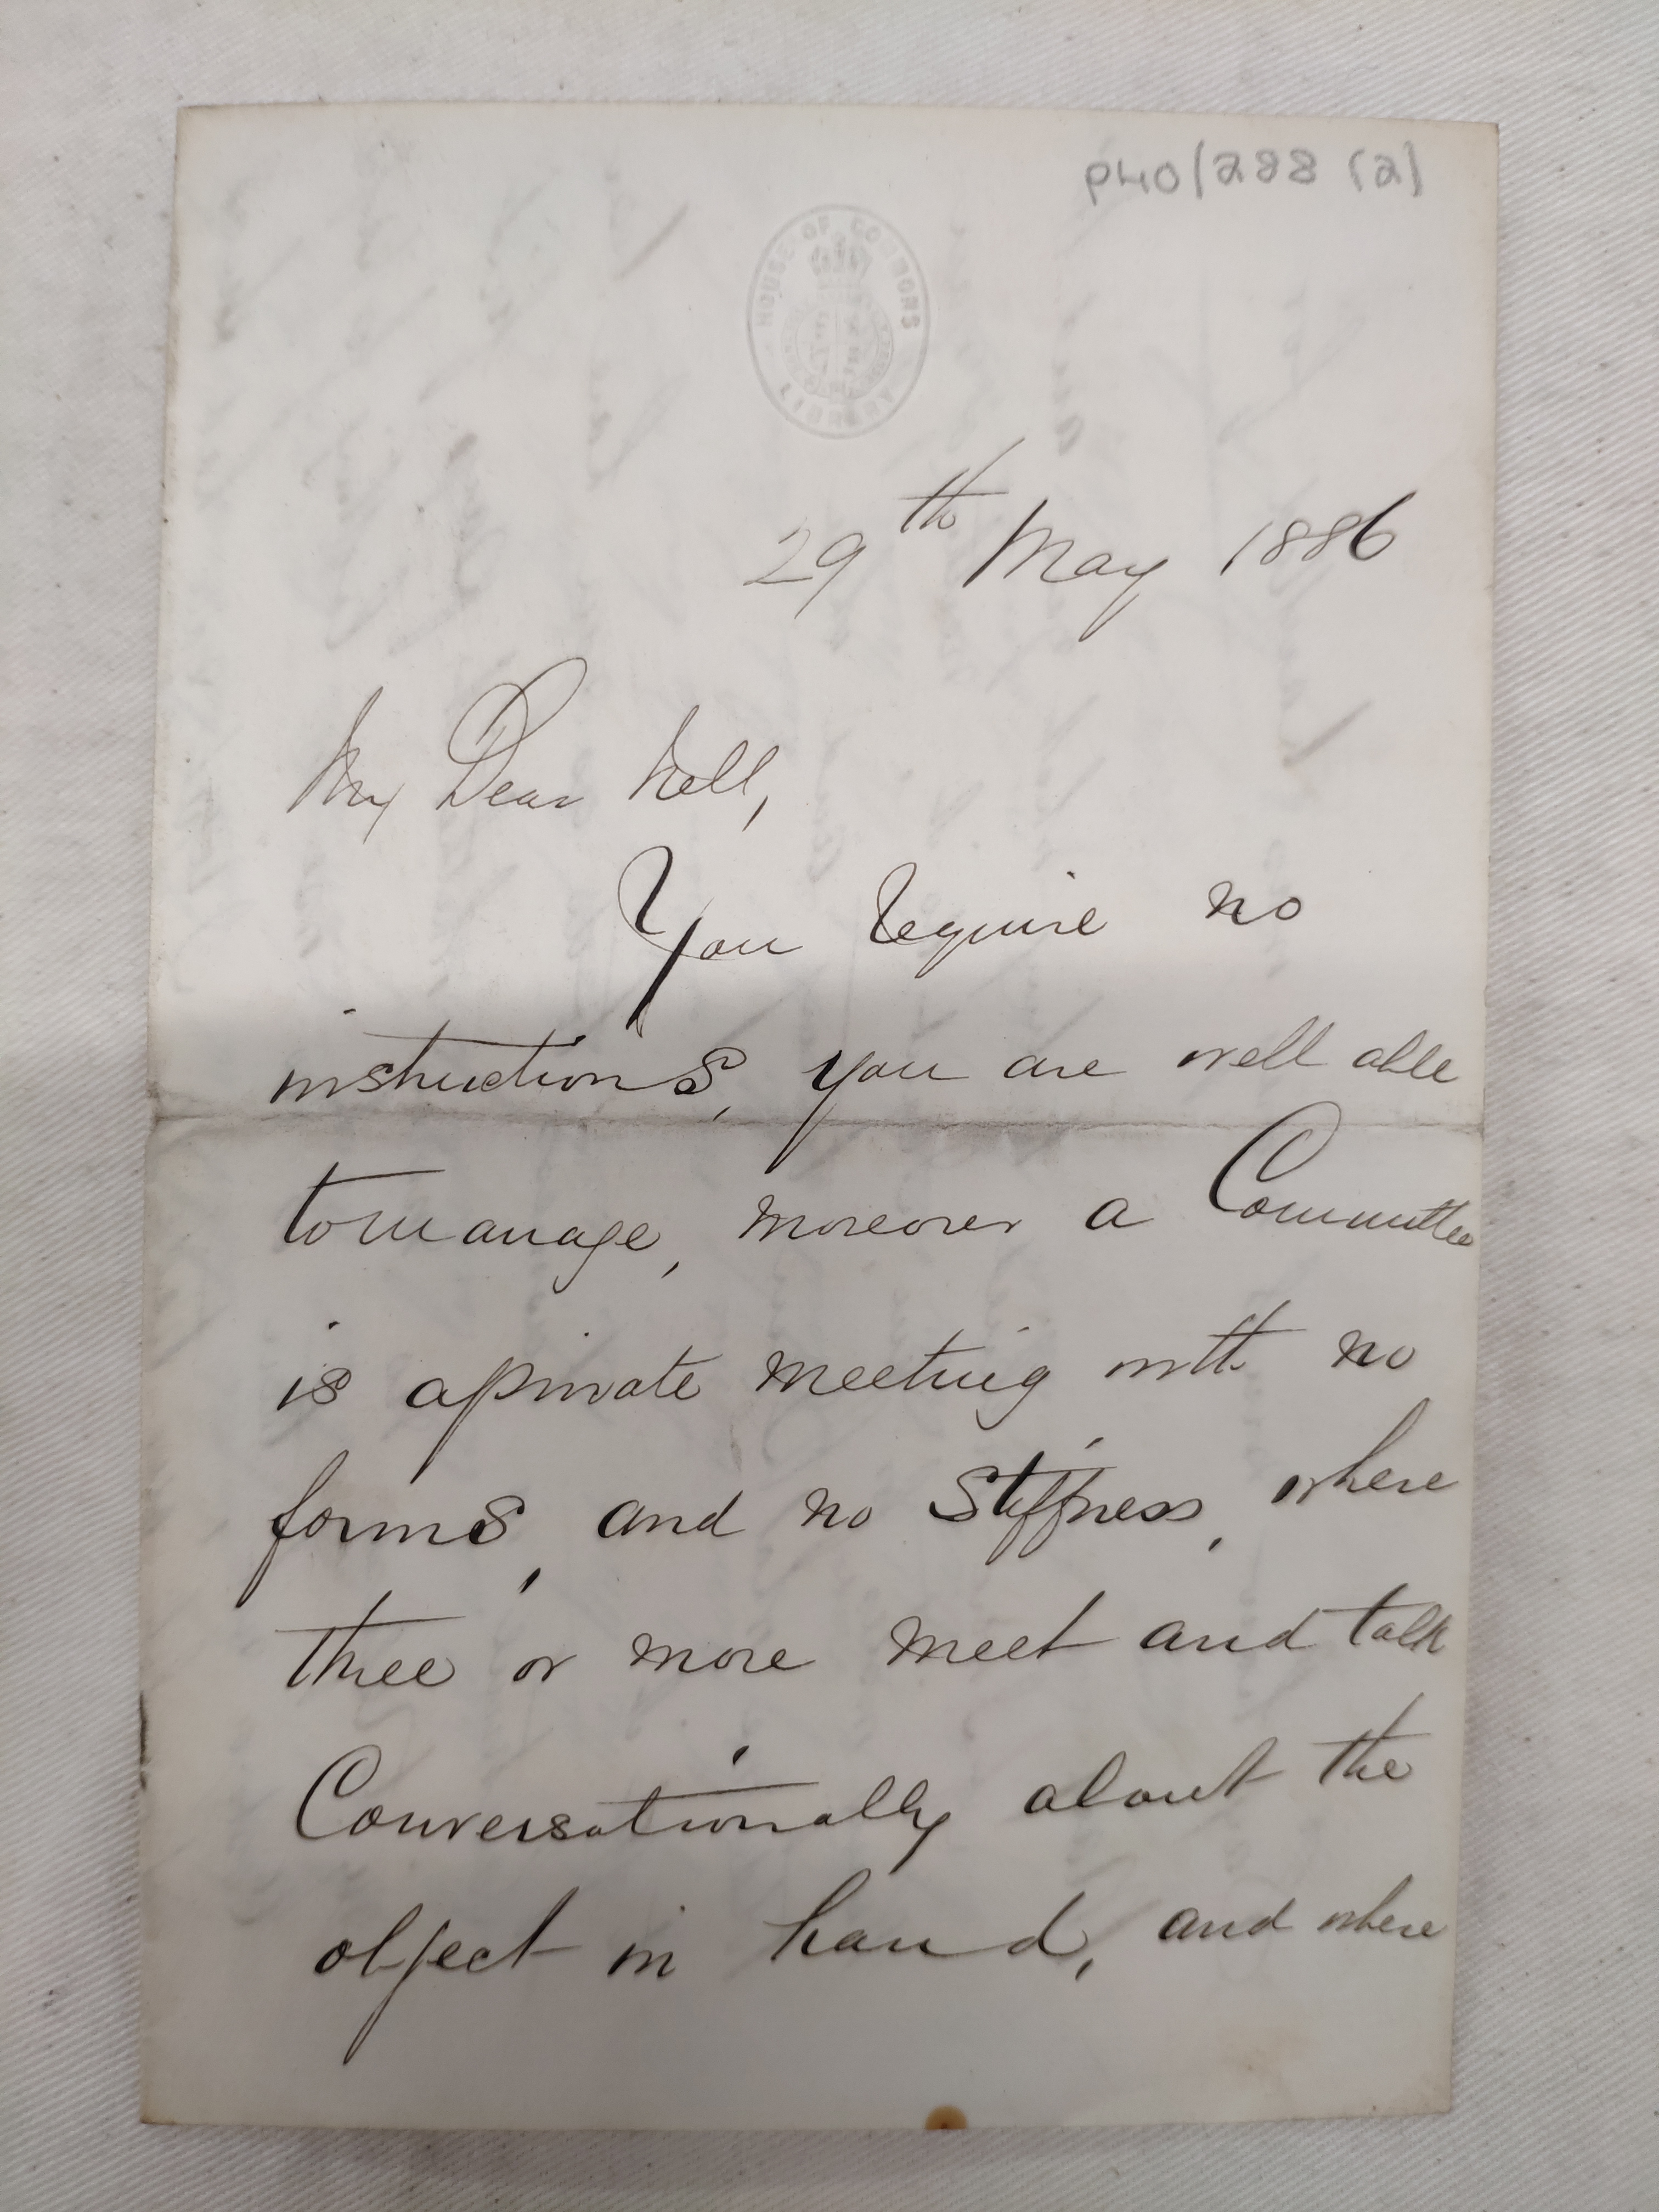 P40/288 (2)
HOUSE OF COMMONS
LIBRARY
29th May 1886
My Dear Nell,
You require no
instructions, you are well able
to manage, moreover a Committee
is a private meeting with no
forms, and no stiffness, where
three or more meet and talk
Conversationally about the
object in hand, and where